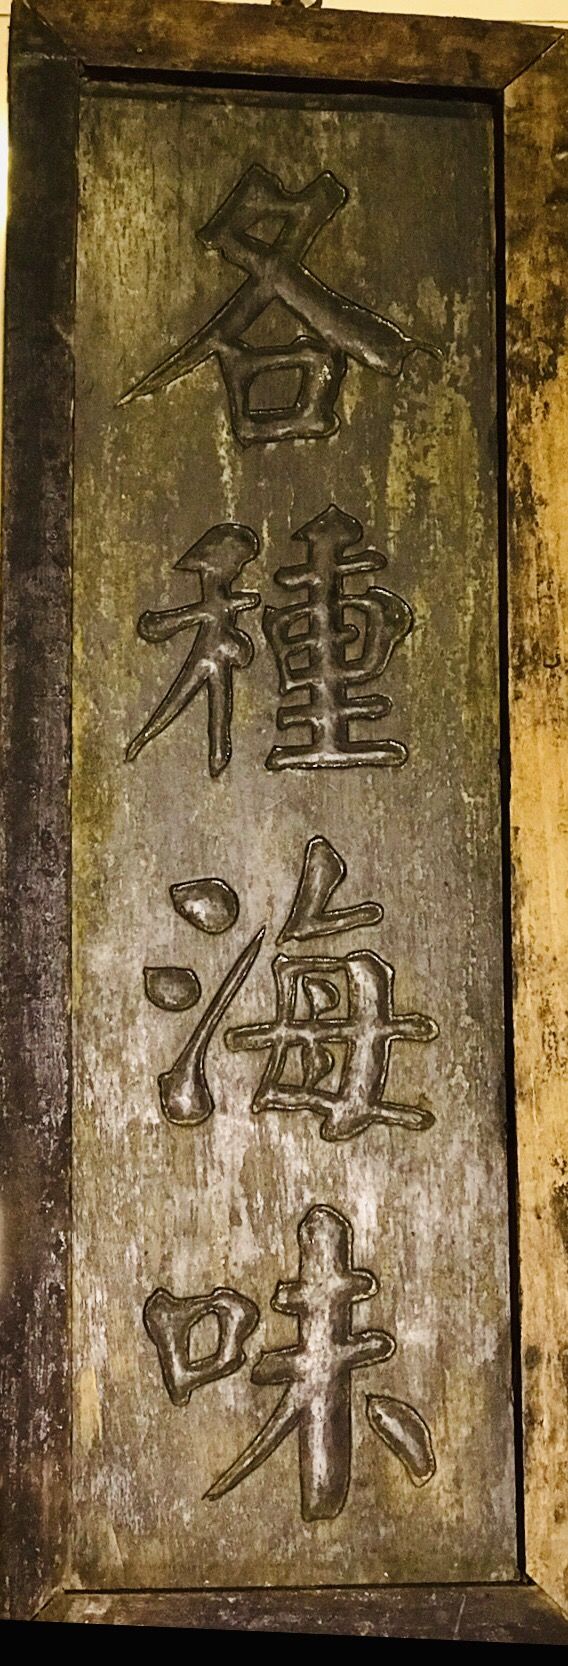 各種海味